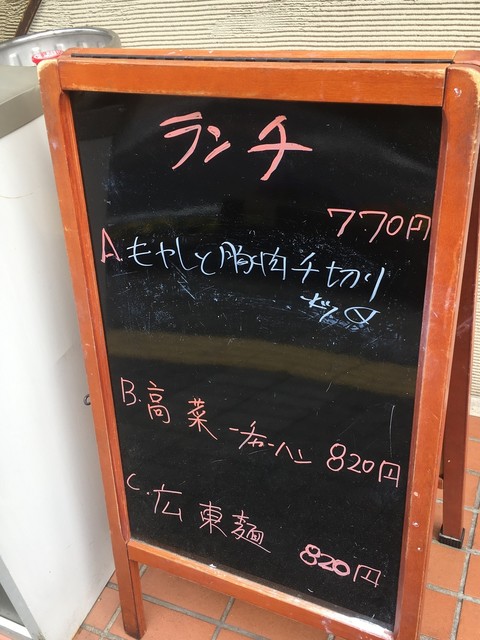 ランチ
770円
A.もやしと胸肉チ切り
B.高菜チャーハン 820円
C.広東麺 820円